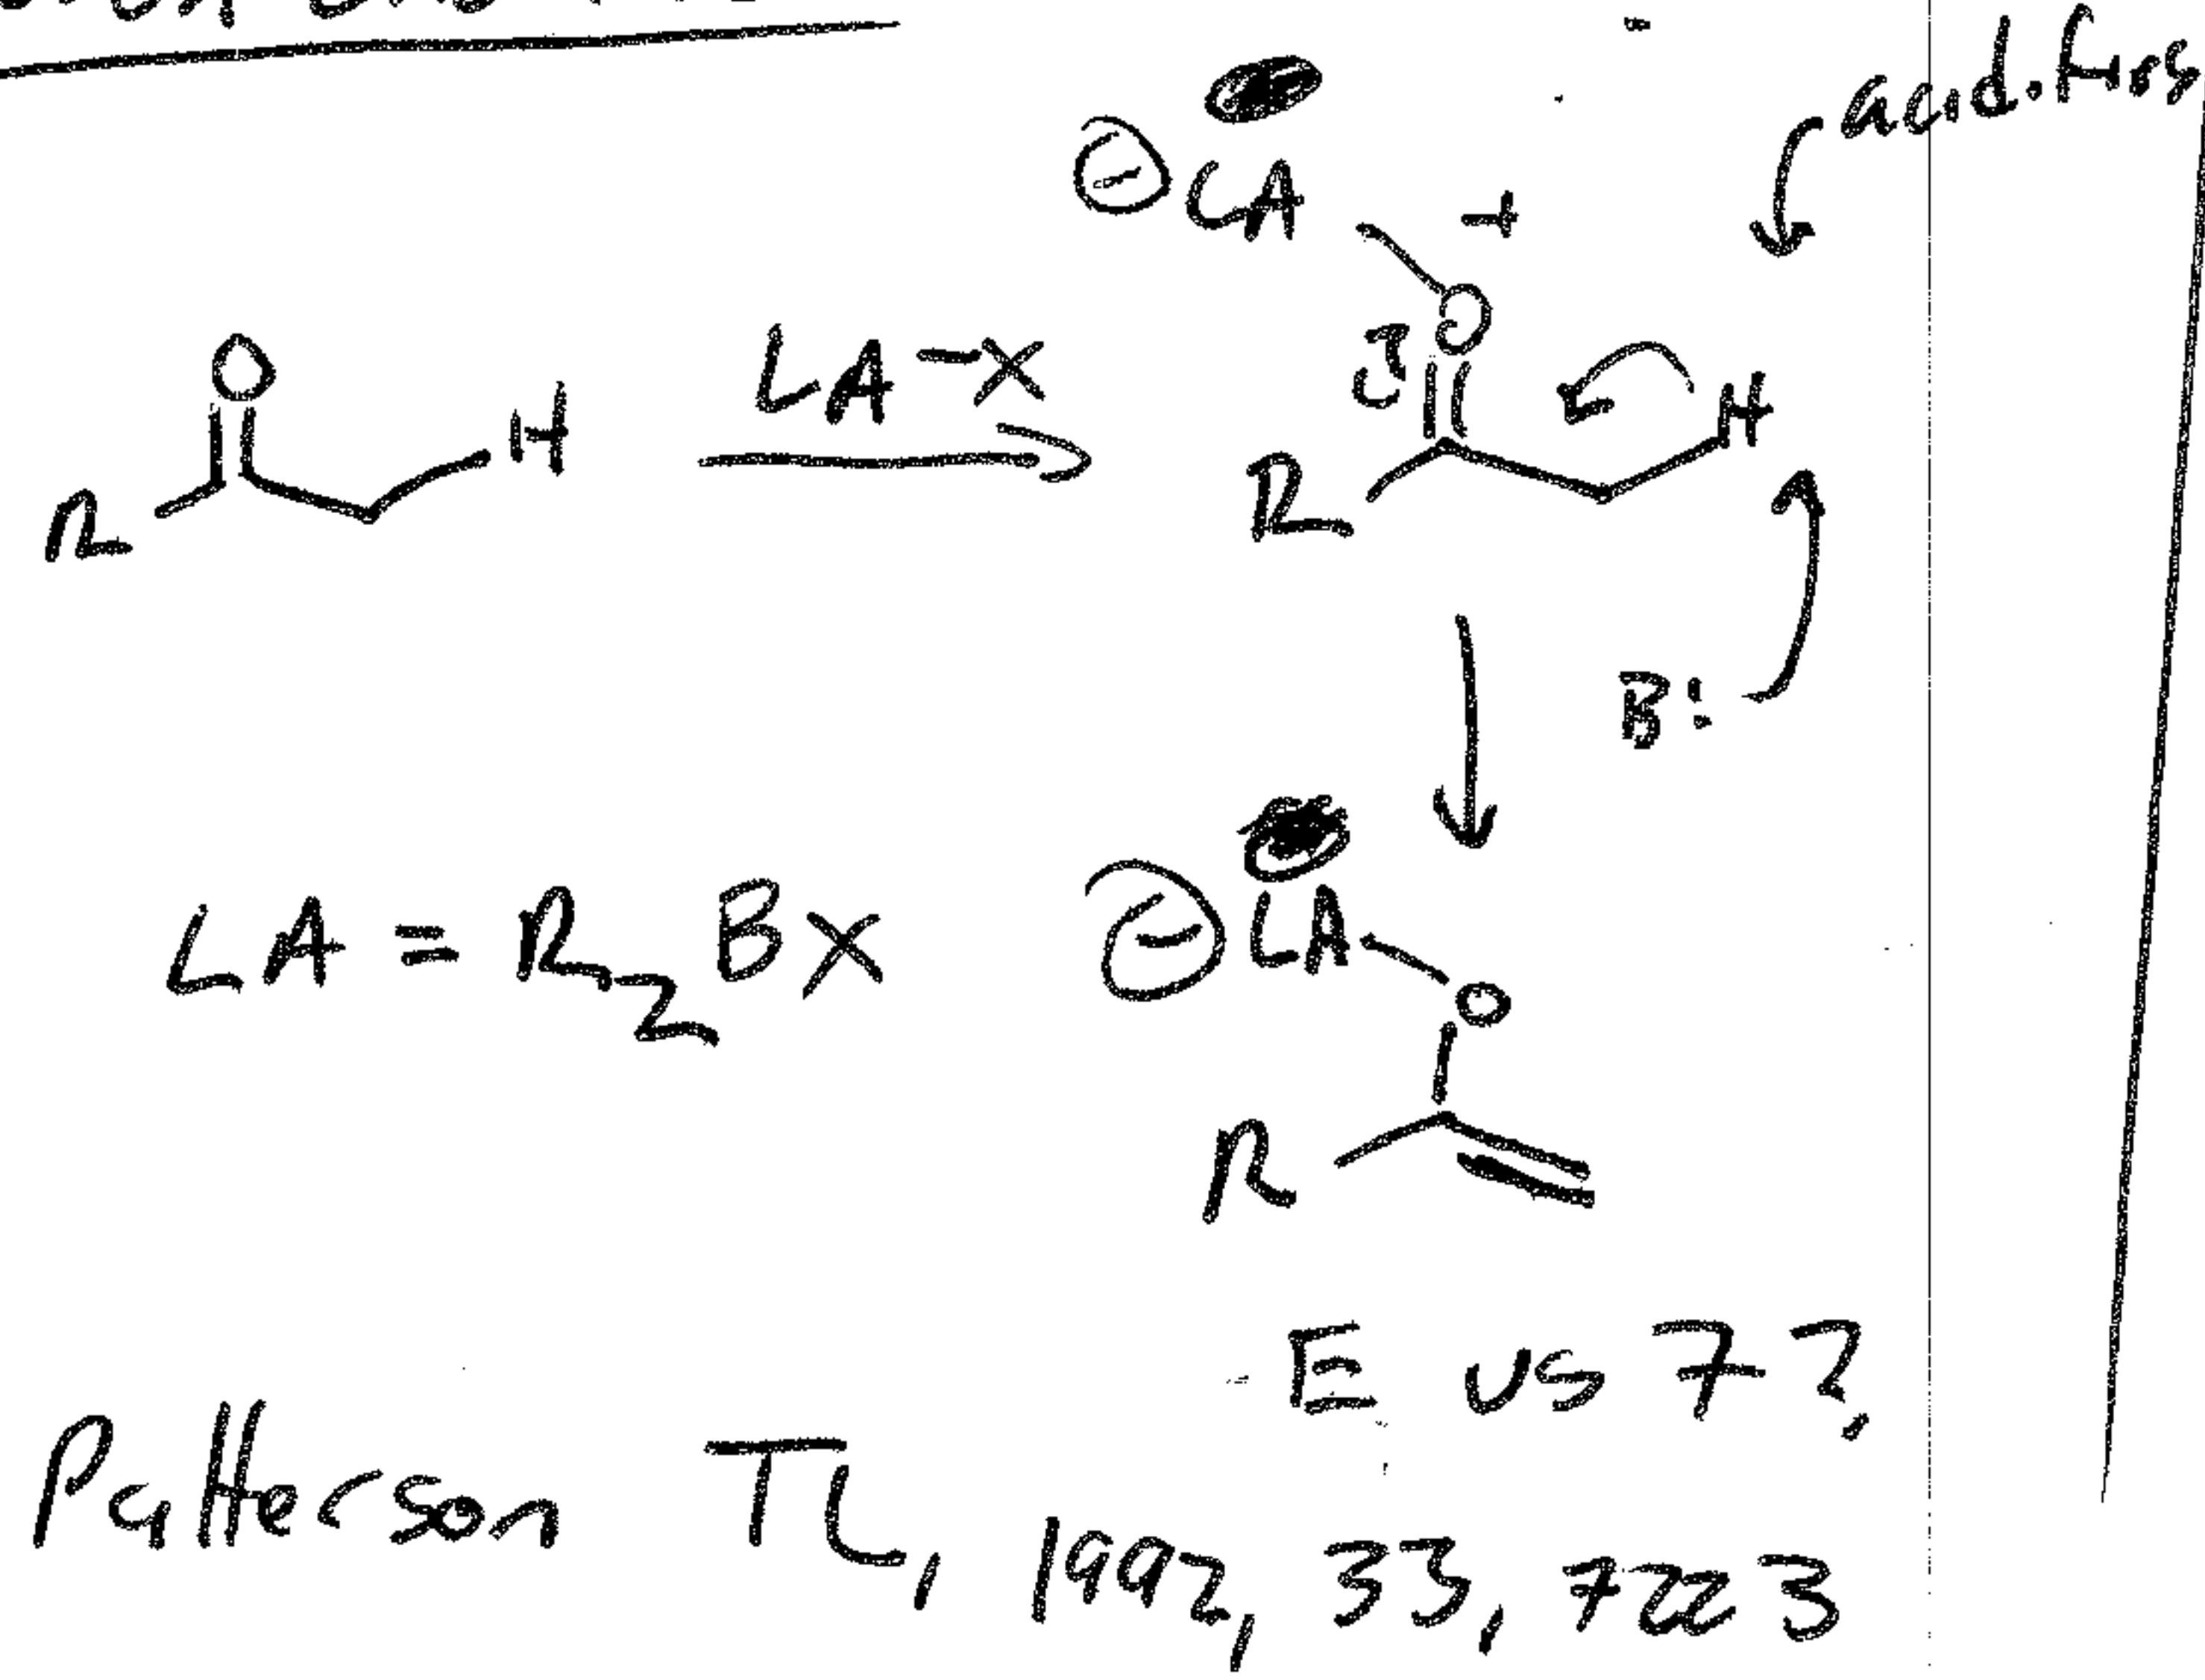 ⊖ LA +
acidifies
O
R H
LA-X
O
R H
B:
LA = R2BX
⊖ LA
O
R
E vs Z?
Patterson TL, 1992, 33, 7223